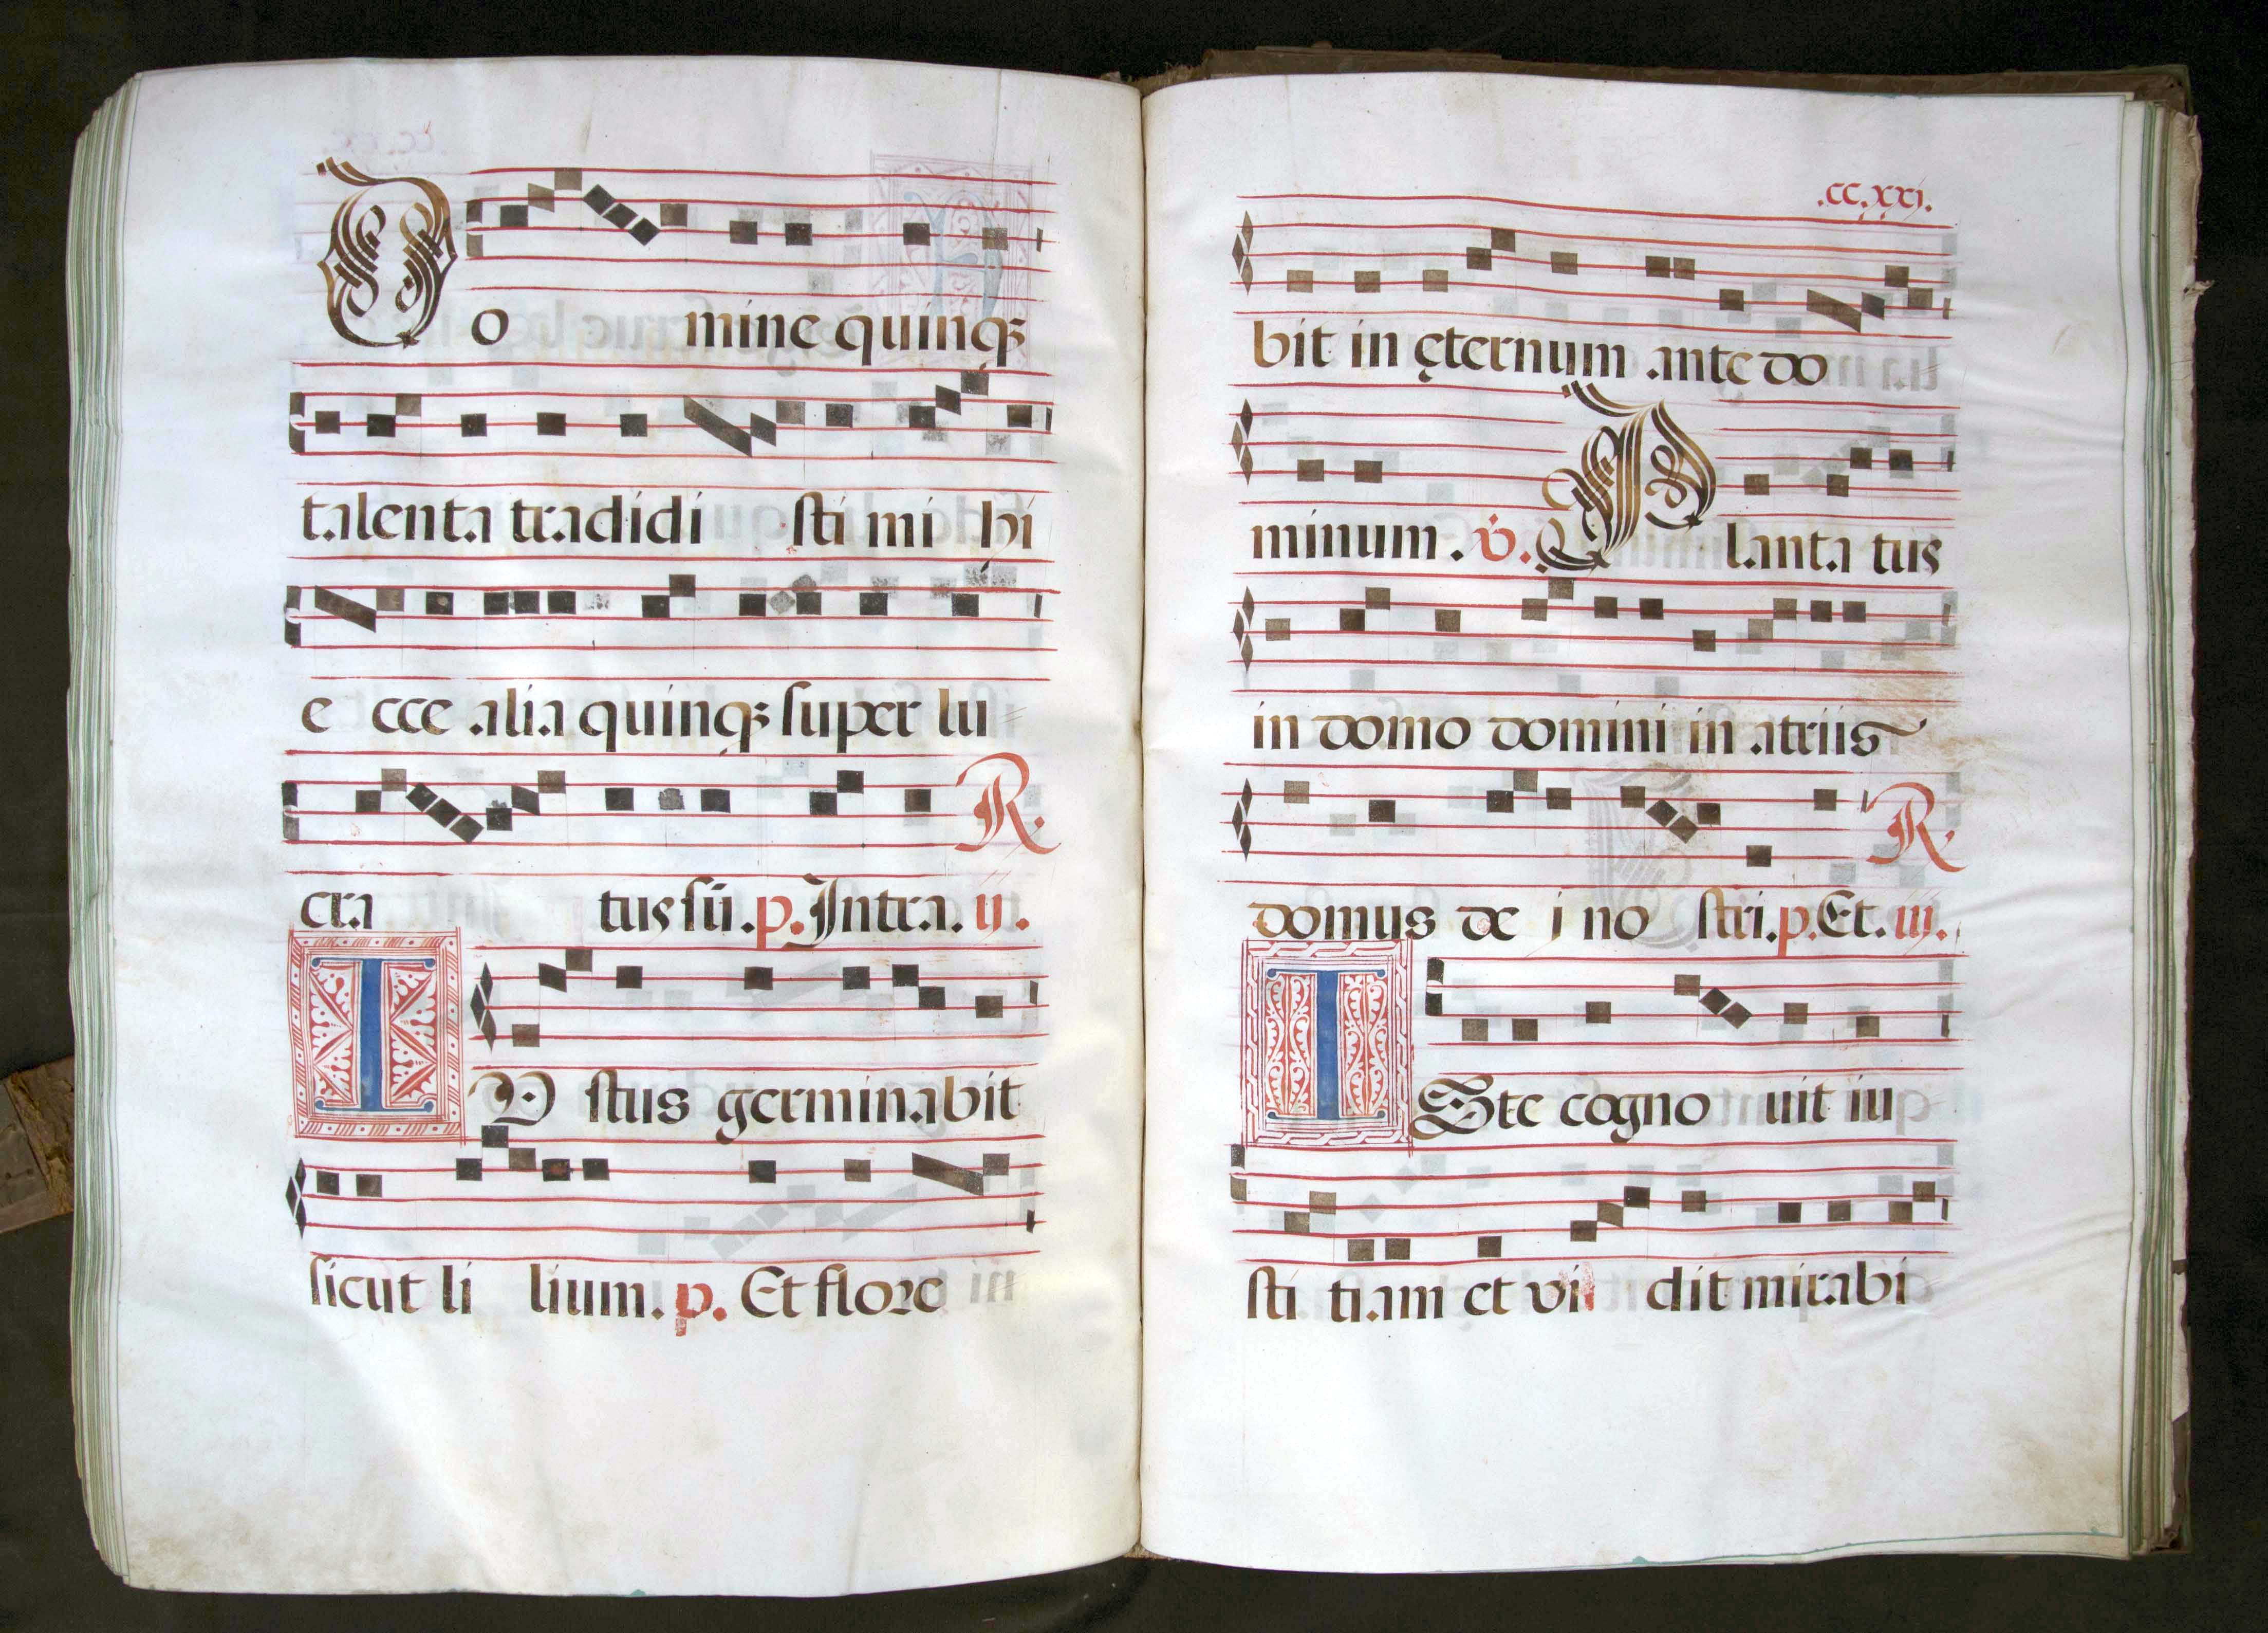 Do mine quinqꝫ
talenta tradidi sti mi hi
e cce alia quinqꝫ super lu
cra tus sũ. p. Intra. ij.
IU stus germinabit
sicut li lium. p. Et flore
.CC.xxj.
bit in ęternum ante do
minum. v̇. Planta tus
in domo domini in atriis
domus de i no stri. p. Et. iij.
ISte cogno uit iu
sti tiam et vi dit mirabi